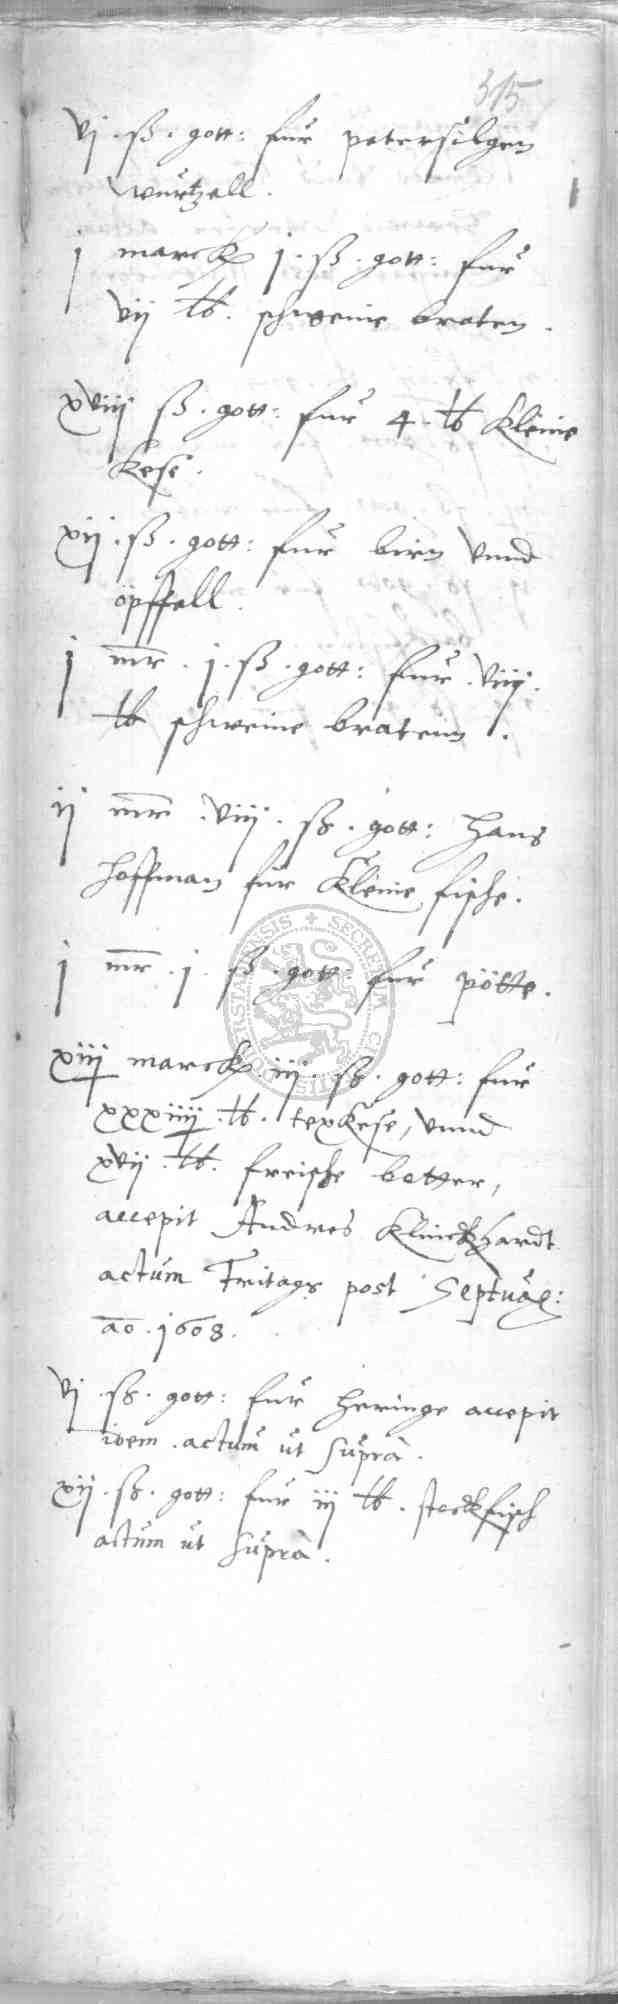 315
vj. ß. gott: fur petersilgen
wurtzell.
j marck j. ß. gott: fur
vij lb. schweine braten.
xviij ß. gott: fur 4. lb kleine
kese.
xij. ß. gott: fur birn vnnd
öpffell.
j mr. j. ß. gott: fur. viij.
lb schweine bratenn.
ij mr. viij. ß. gott: Hans
Hoffman fur kleine fische.
j mr. j. ß. gott: fur pötte.
xiij marck iij. ß. gott: fur
xxxiiij. lb. texkese, vnnd
xvij. lb. freische botter,
accepit Andres Klinckhardt
actum Fritags post Septuag:
ao. 1608.
vj. ß. gott: fur heringe accepit
idem. actum ut supra.
xij. ß. gott: fur iij lb. stockfisch
actum ut supra.
SECRETUM CI